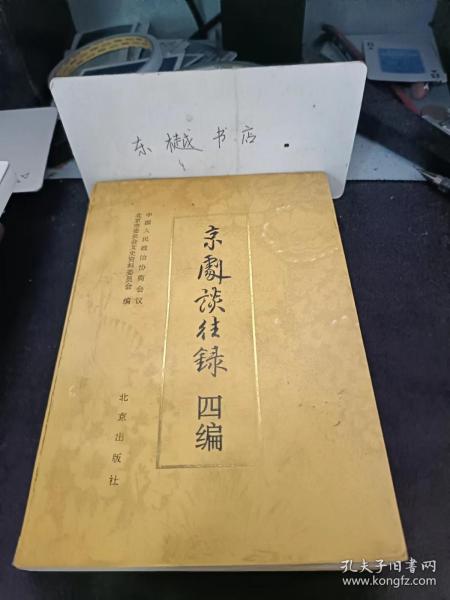 东樾书店
京劇談往録 四编
中国人民政治协商会议
北京市委员会文史资料委员会 编
北京出版社
孔夫子旧书网
www.kongfz.com